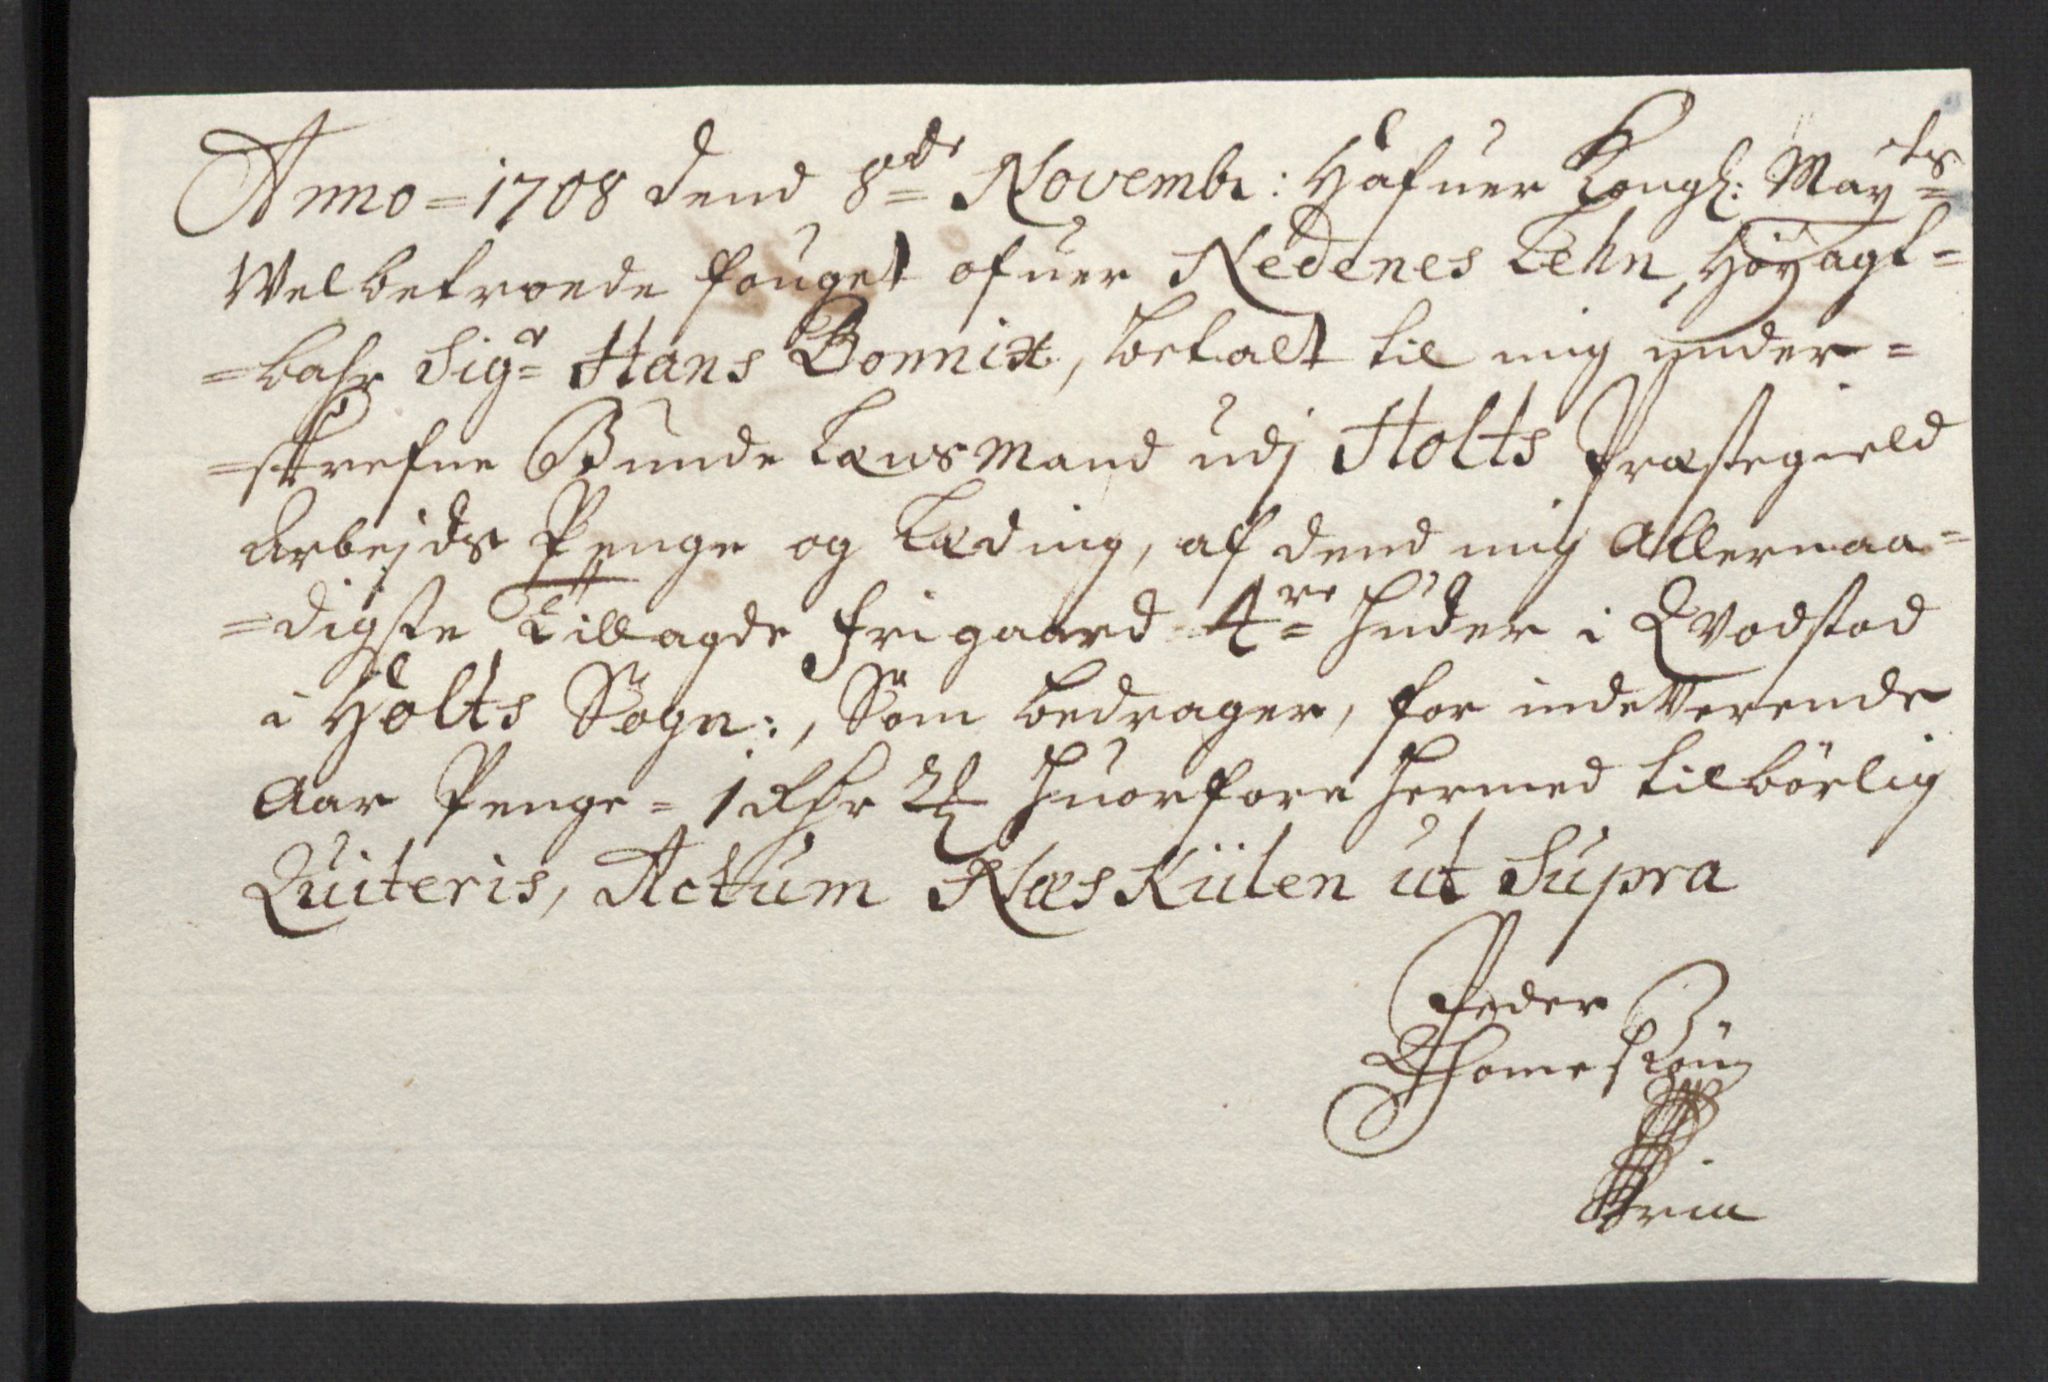 Anno = 1708 dend 8de Novembr: Hafuer Kongl: Mayts
Welbetroede fouget ofuer Nedenes Lehn, Höyagt=
=bahr Sigr Hans Bonnix, betalt til mig under=
=skrefne Bunde Lænsmand udj Holts Præstegield
Arbejds Penge og Læding, af dend mig Allernaa=
=digste Tillagde frigaard 4re huder i Qvodstad
i Holts Sogn:, Som bedrager, for indeVerende
Aar Penge = 1 Rdr 2½ huorfore hermed tilbörlig
Quiteris, Actum Næs Kiilen ut Supra
Peder
Thomeskön